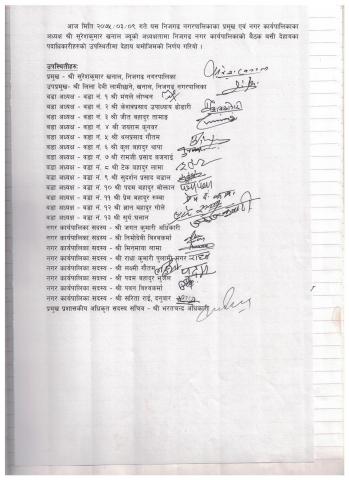 आज मिति २०७५/०३/०९ गते यस निजगढ नगरपालिकाका प्रमुख एवं नगर कार्यपालिकाका
अध्यक्ष श्री सुरेशकुमार खनाल ज्यूको अध्यक्षतामा निजगढ नगर कार्यपालिकाको बैठक बसी देहायका
पदाधिकारीहरुको उपस्थितीमा देहाय बमोजिमको निर्णय गरियो ।
उपस्थितीहरु:
प्रमुख - श्री सुरेशकुमार खनाल, निजगढ नगरपालिका
उपप्रमुख- श्री लिला देवी लामीछाने, खनाल, निजगढ नगरपालिका
वडा अध्यक्ष - वडा नं. १ श्री मंगले लोप्चन
वडा अध्यक्ष - वडा नं. २ श्री केशवप्रसाद उपाध्याय
वडा अध्यक्ष - वडा नं. ३ श्री जीत बहादुर तामाङ
वडा अध्यक्ष - वडा नं. ४ श्री जयराम कुनवर
वडा अध्यक्ष - वडा नं. ५ श्री थलप्रसाद गौतम
वडा अध्यक्ष - वडा नं. ६ श्री कुल बहादुर थापा
वडा अध्यक्ष - वडा नं. ७ श्री रामजी प्रसाद बजगाई
वडा अध्यक्ष - वडा नं. ८ श्री टेक बहादुर लामा
वडा अध्यक्ष - वडा नं. ९ श्री सुदर्शन प्रसाद
वडा अध्यक्ष - वडा नं. १० श्री पदम बहादुर बोम्जान
वडा अध्यक्ष - वडा नं. ११ श्री प्रेम बहादुर रुम्बा
वडा अध्यक्ष - वडा नं. १२ श्री ज्ञान बहादुर गोले
वडा अध्यक्ष - वडा नं. १३ श्री सूर्य घलान
नगर कार्यपालिका सदस्य - श्री जगत कुमारी अधिकारी
नगर कार्यपालिका सदस्य - श्री निर्मादेवी विश्वकर्मा
नगर कार्यपालिका सदस्य - श्री मिनमाया लामा
नगर कार्यपालिका सदस्य - श्री राधा कुमारी पुलामी मगर राधा
नगर कार्यपालिका सदस्य - श्री लक्ष्मी गौतम
नगर कार्यपालिका सदस्य - श्री पदम बहादुर
नगर कार्यपालिका सदस्य - श्री पवन विश्वकर्मा
नगर कार्यपालिका सदस्य - श्री सरिता राई, दनुवार
प्रमुख प्रशासकीय अधिकृत सदस्य सचिव - श्री भरतचन्द्र अधिकारी